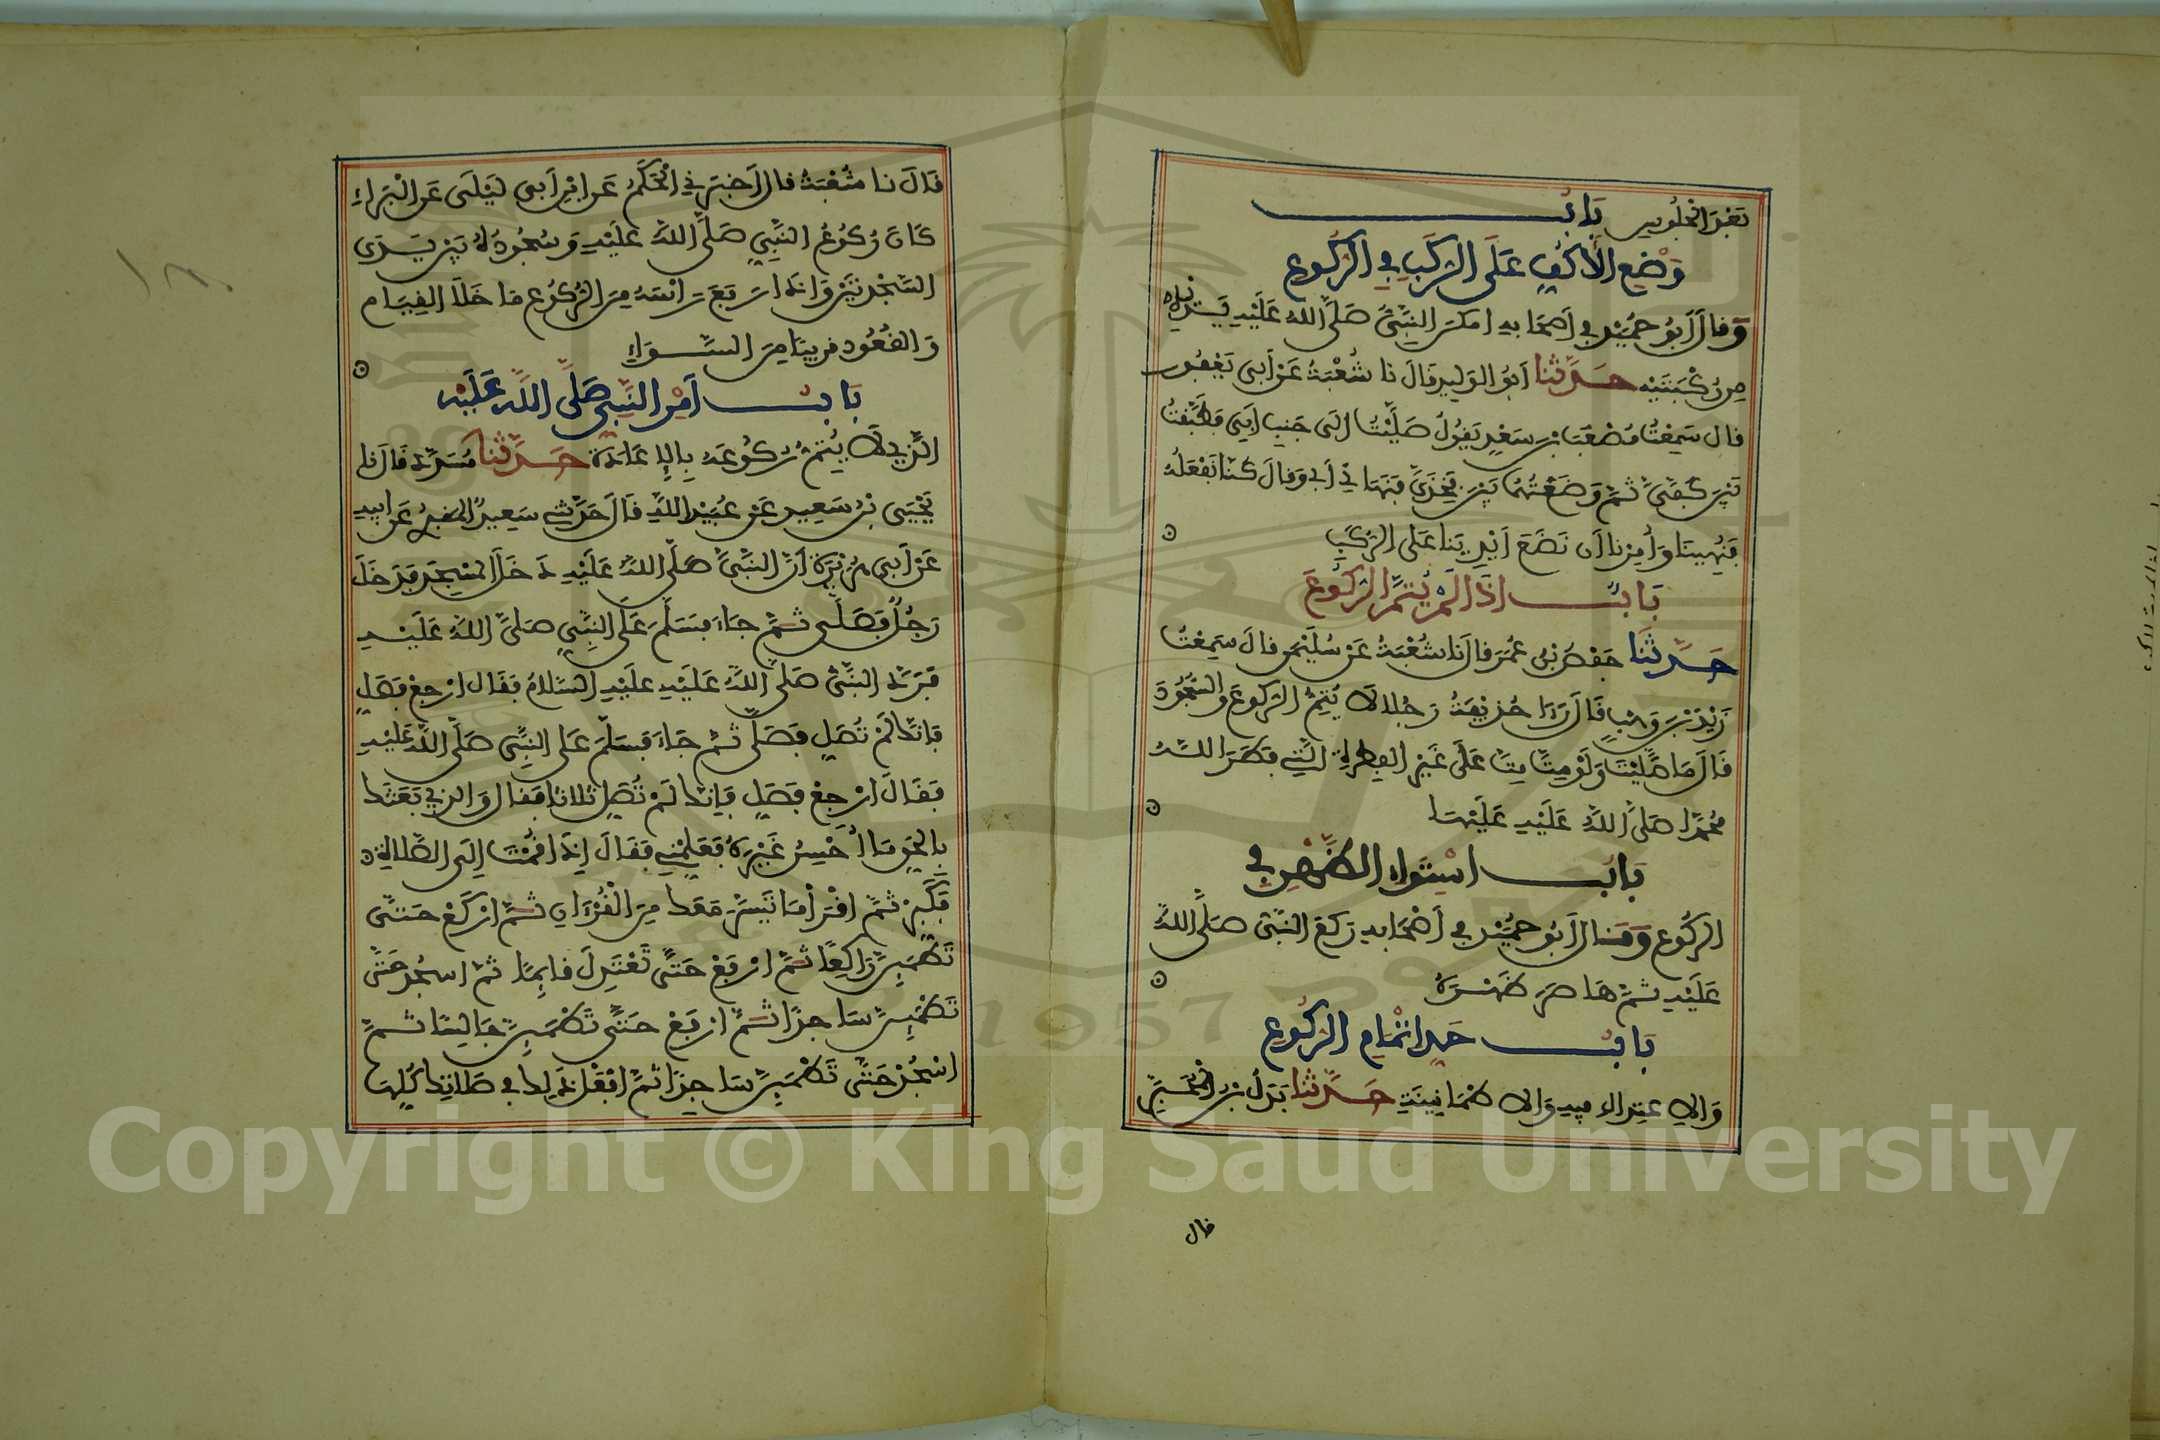 بَعْدَ الْجُلُوسِ بَابُ
وَضْعِ الْأَكُفِّ عَلَى الرُّكَبِ فِي الرُّكُوعِ
وَقَالَ أَبُو حُمَيْدٍ فِي أَصْحَابِهِ امكن النَّبِيُّ صَلَّى اللهُ عَلَيْهِ يَدَيْهِ
مِن رُّكْبَتَيْهِ حَدَّثَنَا أَبُو الْوَلِيدِ قَالَ نَا شُعْبَةُ عَنْ أَبِي يَعْفُورٍ
قَالَ سَمِعْتُ مُصْعَبَ بْنَ سَعْدٍ يَقُولُ صَلَّيْتُ إِلَى جَنْبِ أَبِي فَطَبَّقْتُ
بَيْنَ كَفَّيَّ ثُمَّ وَضَعْتُهُمَا بَيْنَ فَخِذَيَّ فَنَهَانِي أَبِي وَقَالَ كُنَّا نَفْعَلُهُ
فَنُهِينَا وَأُمِرْنَا أَن نَضَعَ أَيْدِيَنَا عَلَى الرُّكَبِ
بَابٌ إِذَا لَمْ يُتِمَّ الرُّكُوعَ
حَدَّثَنَا حَفْصُ بْنُ عُمَرَ قَالَ نَا شُعْبَةُ عَنْ سُلَيْمَنَ قَالَ سَمِعْتُ
زَيْدَ بْنَ وَهْبٍ قَالَ رَءَا حُذَيْفَةُ رَجُلًا لَا يُتِمُّ الرُّكُوعَ وَالسُّجُودَ
قَالَ مَا صَلَّيْتَ وَلَوْ مِتَّ مِتَّ عَلَى غَيْرِ الْفِطْرَةِ الَّتِي فَطَرَ اللَّهُ
مُحَمَّدًا صَلَّى اللهُ عَلَيْهِ عَلَيْهَا
بَابُ اسْتِوَاءِ الظَّهْرِ فِي
الرُّكُوعِ وَقَالَ أَبُو حُمَيْدٍ فِي أَصْحَابِهِ رَكَعَ النَّبِيُّ صَلَّى اللهُ
عَلَيْهِ ثُمَّ هَصَرَ ظَهْرَهُ
بَابُ حَدِّ إِتْمَامِ الرُّكُوعِ
وَالِاعْتِدَالِ فِيهِ وَالِاطْمَانِينَةِ حَدَّثَنَا بَدَلُ بْنُ الْمُحَبَّرِ
قال
قَالَ نَا شُعْبَةُ قَالَ أَخْبَرَنِي الْحَكَمُ عَنِ ابْنِ أَبِي لَيْلَى عَنِ الْبَرَاءِ
كَانَ رُكُوعُ النَّبِيِّ صَلَّى اللهُ عَلَيْهِ وَسُجُودُهُ وَبَيْنَ
السَّجْدَتَيْنِ وَإِذَا رَفَعَ رَأْسَهُ مِنَ الرُّكُوعِ مَا خَلَا الْقِيَامَ
وَالْقُعُودَ قَرِيبًا مِنَ السَّوَاءِ
بَابُ أَمْرِ النَّبِيِّ صَلَّى اللَّهُ عَلَيْهِ
الَّذِي لَا يُتِمُّ رُكُوعَهُ بِالْإِعَادَةِ حَدَّثَنَا مُسَدَّدٌ قَالَ نَا
يَحْيَى بْنُ سَعِيدٍ عَنْ عُبَيْدِ اللَّهِ قَالَ حَدَّثَنِي سَعِيدٌ الْمَقْبُرِيُّ عَنْ أَبِيهِ
عَنْ أَبِي هُرَيْرَةَ أَنَّ النَّبِيَّ صَلَّى اللهُ عَلَيْهِ دَخَلَ الْمَسْجِدَ فَدَخَلَ
رَجُلٌ فَصَلَّى ثُمَّ جَاءَ فَسَلَّمَ عَلَى النَّبِيِّ صَلَّى اللهُ عَلَيْهِ
فَرَدَّ النَّبِيُّ صَلَّى اللهُ عَلَيْهِ عَلَيْهِ السَّلَامُ فَقَالَ ارْجِعْ فَصَلِّ
فَإِنَّكَ لَمْ تُصَلِّ فَصَلَّى ثُمَّ جَاءَ فَسَلَّمَ عَلَى النَّبِيِّ صَلَّى اللهُ عَلَيْهِ
فَقَالَ ارْجِعْ فَصَلِّ فَإِنَّكَ لَمْ تُصَلِّ ثَلَاثًا فَقَالَ وَالَّذِي بَعَثَكَ
بِالْحَقِّ مَا أُحْسِنُ غَيْرَهُ فَعَلِّمْنِي فَقَالَ إِذَا قُمْتَ إِلَى الصَّلَاةِ
فَكَبِّرْ ثُمَّ اقْرَأْ مَا تَيَسَّرَ مَعَكَ مِنَ الْقُرْءَانِ ثُمَّ ارْكَعْ حَتَّى
تَطْمَئِنَّ رَاكِعًا ثُمَّ ارْفَعْ حَتَّى تَعْتَدِلَ قَائِمًا ثُمَّ اسْجُدْ حَتَّى
تَطْمَئِنَّ سَاجِدًا ثُمَّ ارْفَعْ حَتَّى تَطْمَئِنَّ جَالِسًا ثُمَّ
اسْجُدْ حَتَّى تَطْمَئِنَّ سَاجِدًا ثُمَّ افْعَلْ ذَلِكَ فِي صَلَاتِكَ كُلِّهَا
١٨٠
1957
Copyright © King Saud University